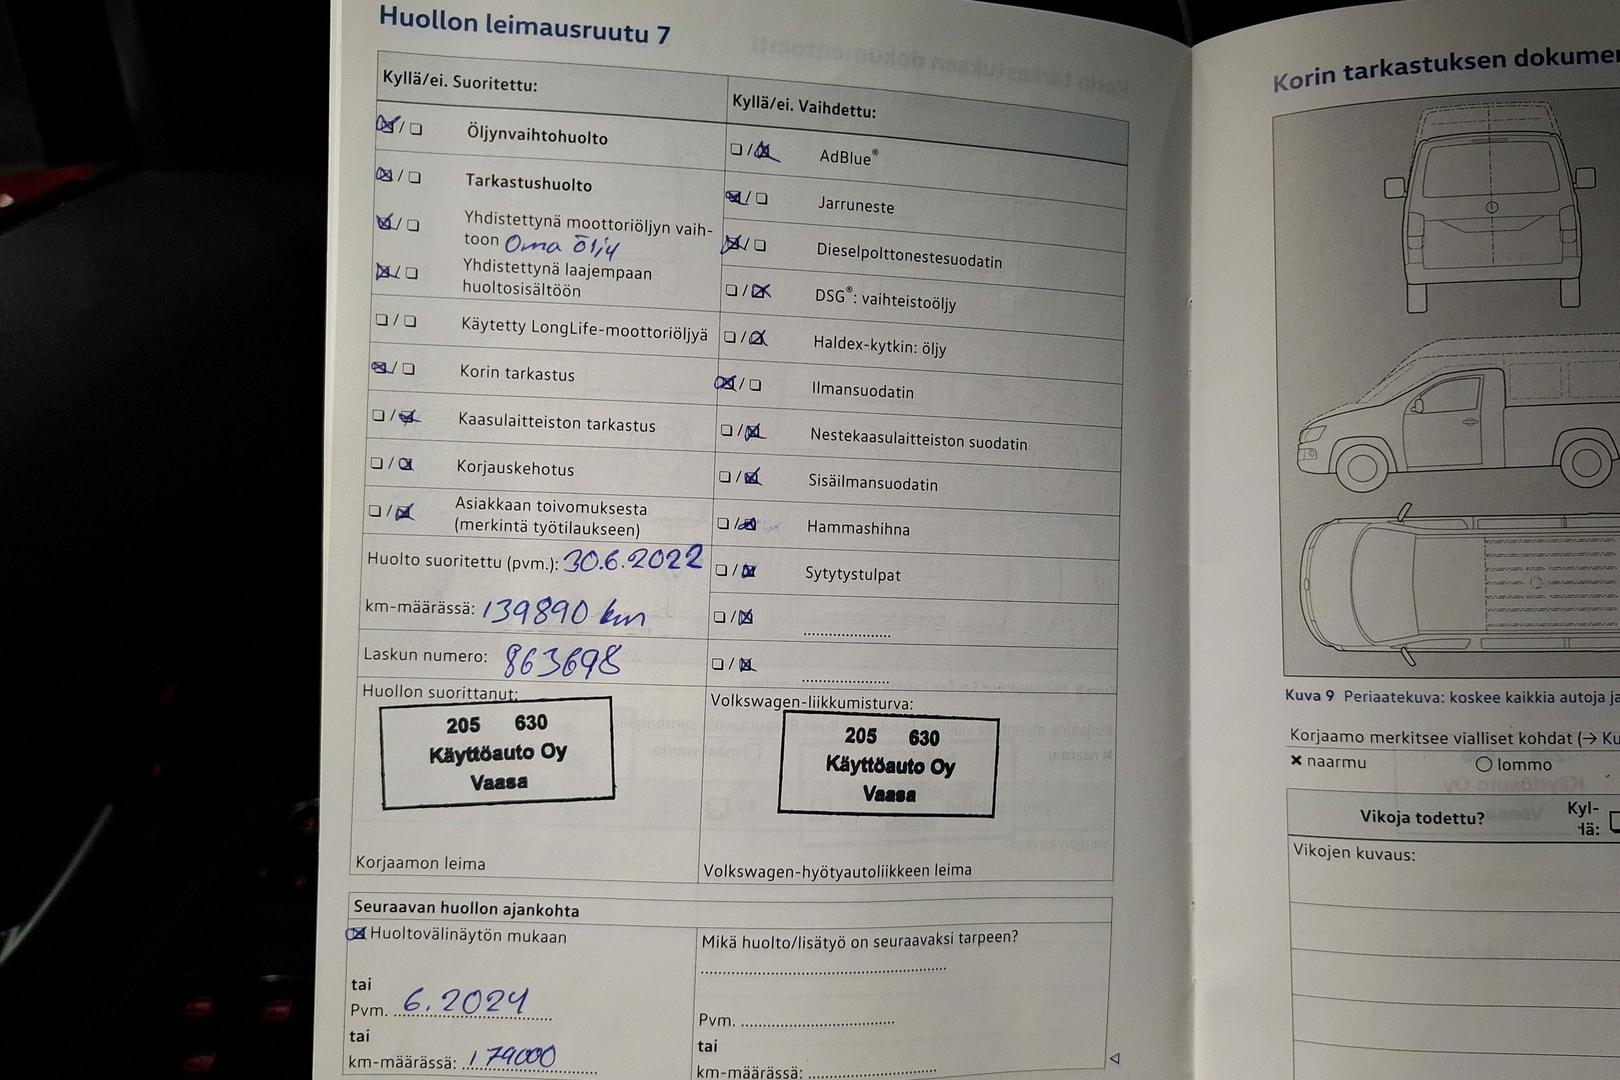 Huollon leimausruutu 7
Kyllä/ei. Suoritettu:
Öljynvaihtohuolto
Tarkastushuolto
Yhdistettynä moottoriöljyn vaih-
toon Oma öljy
Yhdistettynä laajempaan
huoltosisältöön
Käytetty LongLife-moottoriöljyä
Korin tarkastus
Kaasulaitteiston tarkastus
Korjauskehotus
Asiakkaan toivomuksesta
(merkintä työtilaukseen)
Huolto suoritettu (pvm.): 30.6.2022
km-määrässä: 139890 km
Laskun numero: 863698
Huollon suorittanut:
205 630
Käyttöauto Oy
Vaasa
Korjaamon leima
Kyllä/ei. Vaihdettu:
AdBlue®
Jarruneste
Dieselpolttonestesuodatin
DSG®: vaihteistoöljy
Haldex-kytkin: öljy
Ilmansuodatin
Nestekaasulaitteiston suodatin
Sisäilmansuodatin
Hammashihna
Sytytystulpat
Volkswagen-liikkumisturva:
205 630
Käyttöauto Oy
Vaasa
Volkswagen-hyötyautoliikkeen leima
Seuraavan huollon ajankohta
Huoltovälinäytön mukaan
tai
Pvm. 6.2024
tai
km-määrässä: 179000
Mikä huolto/lisätyö on seuraavaksi tarpeen?
Pvm.
tai
km-määrässä:
Korin tarkastuksen dokumen
Kuva 9 Periaatekuva: koskee kaikkia autoja ja
Korjaamo merkitsee vialliset kohdat (→ Ku
× naarmu ○ lommo
Vikoja todettu? Kyl-
lä:
Vikojen kuvaus: